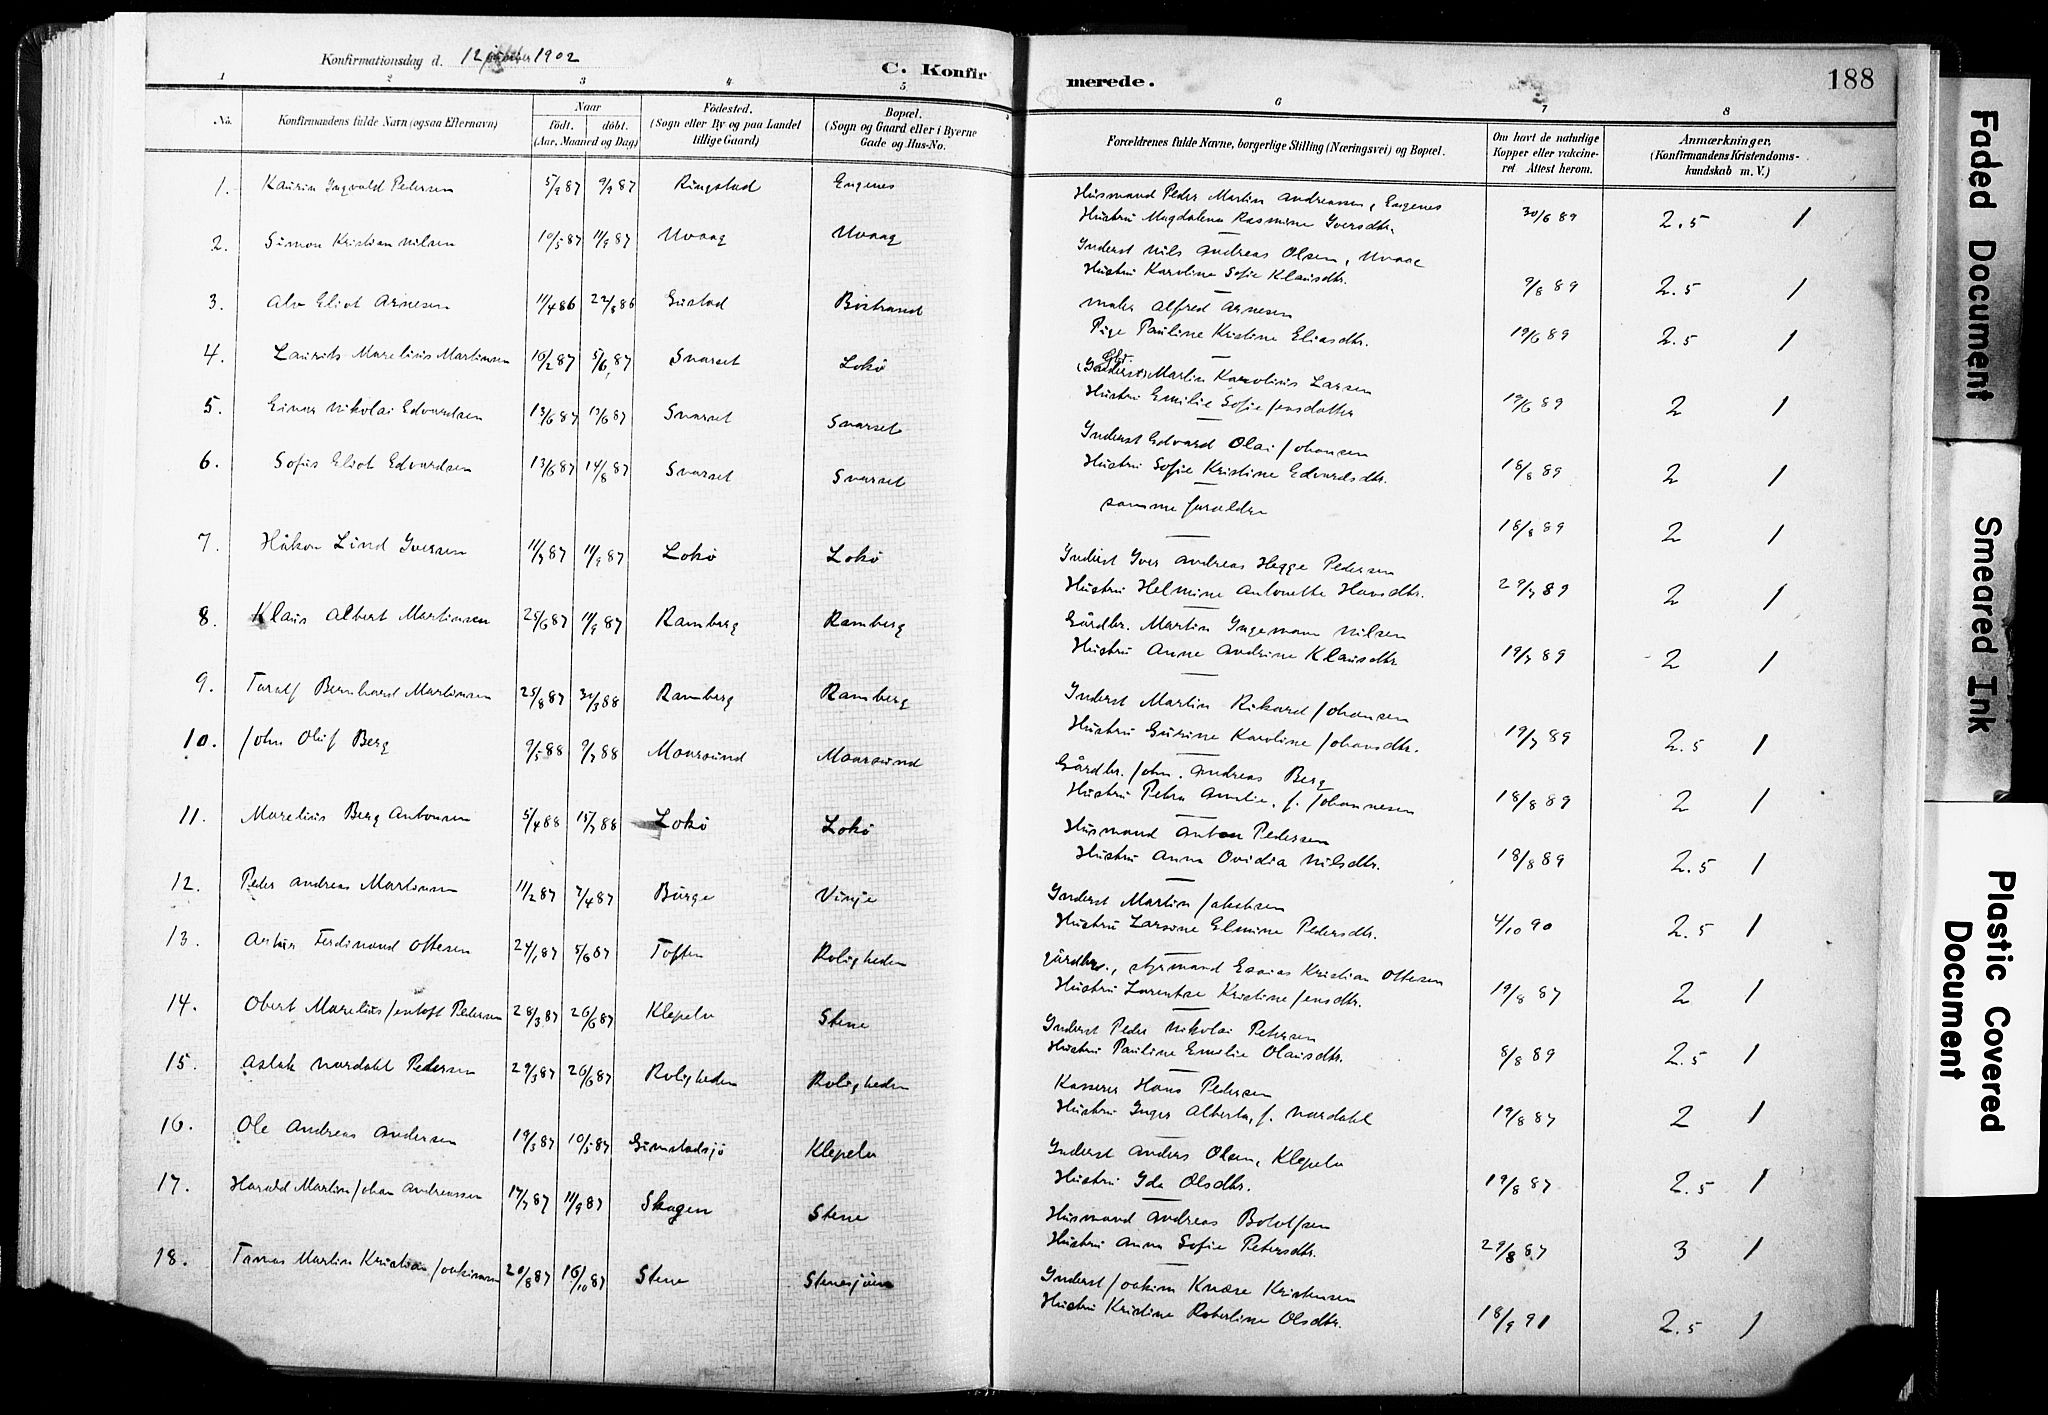 Konfirmationsdag d. 12 oktober 1902
C. Konfirmerede.
188
1 2 3 4 5 6 7 8
No.
Konfirmandens fulde Navn (ogsaa Efternavn)
Naar
født. døbt.
(Aar, Maaned og Dag)
Fødested.
(Sogn eller By og paa Landet
tillige Gaard)
Bopæl.
(Sogn og Gaard eller i Byerne
Gade og Hus-No.
Forældrenes fulde Navne, borgerlige Stilling (Næringsvei) og Bopæl.
Om havt de naturlige
Kopper eller vakcine-
ret Attest herom.
Anmærkninger.
(Konfirmandens Kristendoms-
kundskab m. V.)
1. Kaurin Ingvald Pedersen 5/9 87 9/9 87 Ringstad Engenes
Husmand Peder Martin Andreassen, Engenes
Hustru Magdalena Rasmine Iversdtr. 30/6 89 2.5 1
2. Simon Kristian Nilsen 10/5 87 11/9 87 Uvaag Uvaag
Inderst Nils Andreas Olsen, Uvaag
Hustru Karoline Sofie Klausdtr. 9/8 89 2.5 1
3. Alv Eliot Arnesen 11/4 86 22/8 86 Gustad Bøstrand
maler Alfred Arnesen
Pige Pauline Kristine Eliasdtr. 19/6 89 2.5 1
4. Laurits Marelius Martinsen 16/2 87 5/6 87 Svarset Lokø
Gbr.
(Inderst) Martin Karolius Larsen
Hustru Emilie Sofie Jensdatter 19/6 89 2 1
5. Einar Nikolai Edvardsen 13/6 87 13/6 87 Svarset Svarset
Inderst Edvard Olai Johansen
Hustru Sofie Kristine Edvardsdtr. 18/8 89 2 1
6. Sofus Eliot Edvardsen 13/6 87 14/8 87 Svarset Svarset
samme forældre 18/8 89 2 1
7. Håkon Lind Iversen 11/7 87 11/9 87 Lokø Lokø
Inderst Iver Andreas Hegge Pedersen
Hustru Helmine Antonette Hansdtr. 29/7 89 2 1
8. Klaus Albert Martinsen 25/6 87 11/9 87 Ramberg Ramberg
Gårdbr. Martin Ingemann Nilsen
Hustru Anne Andrine Klausdtr. 19/7 89 2 1
9. Toralf Bernhard Martinsen 25/8 87 30/3 88 Ramberg Ramberg
Inderst Martin Rikard Johansen
Hustru Gurine Karoline Johansdtr. 19/7 89 2.5 1
10. John Oluf Berg 9/5 88 9/7 88 Maarsund Maarsund
Gårdbr. John. Andreas Berg
Hustru Petra Amalie, f. Johannesen 18/8 89 2 1
11. Marelius Berg Antonsen 5/4 88 15/7 88 Lokø Lokø
Husmand Anton Pedersen
Hustru Anna Ovidia Nilsdtr. 18/8 89 2.5 1
12. Peder Andreas Martinsen 11/2 87 7/4 87 Burge Vinje
Inderst Martin Jakobsen
Hustru Larsine Elmine Pedersdtr. 4/10 90 2.5 1
13. Artur Ferdinand Ottesen 24/1 87 5/6 87 Toften Roligheden
gårdbr., styrmand Esaias Kristian Ottesen
Hustru Larentze Kristine Jensdtr. 19/8 87 2 1
14. Obert Marelius Jentoft Pedersen 28/3 87 26/6 87 Klepelv Stene
Inderst Peder Nikolai Petersen
Hustru Pauline Emilie Olausdtr. 8/8 89 2.5 1
15. Aslak Nordahl Pedersen 29/3 87 26/6 87 Roligheden Roligheden
Kasserer Hans Pedersen
Hustru Inger Alberta, f. Nordahl 19/8 87 2 1
16. Ole Andreas Andersen 19/3 87 10/5 87 Gimstadsjø Klepelv
Inderst Anders Olsen, Klepelv
Hustru Ida Olsdtr. 19/8 87 2.5 1
17. Harald Martin Johan Andreassen 17/7 87 11/9 87 Skagen Stene
Husmand Andreas Bolotsen
Hustru Anna Sofie Petersdtr. 29/8 87 3 1
18. Tomas Martin Kristian Joakimsen 20/8 87 16/10 87 Stene Stenesjøen
Inderst Joakim Knøse Kristensen
Hustru Kristine Robertine Olsdtr. 18/9 91 2.5 1
Faded Document
Smeared Ink
Plastic Covered
Document